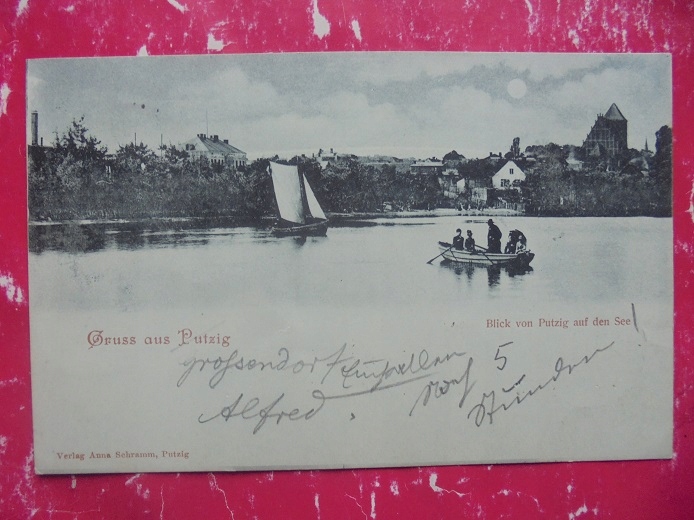 Gruss aus Putzig
Blick von Putzig auf den See!
Grossendorf
Alfred.
Noch 5
Stunden
Verlag Anna Schramm, Putzig